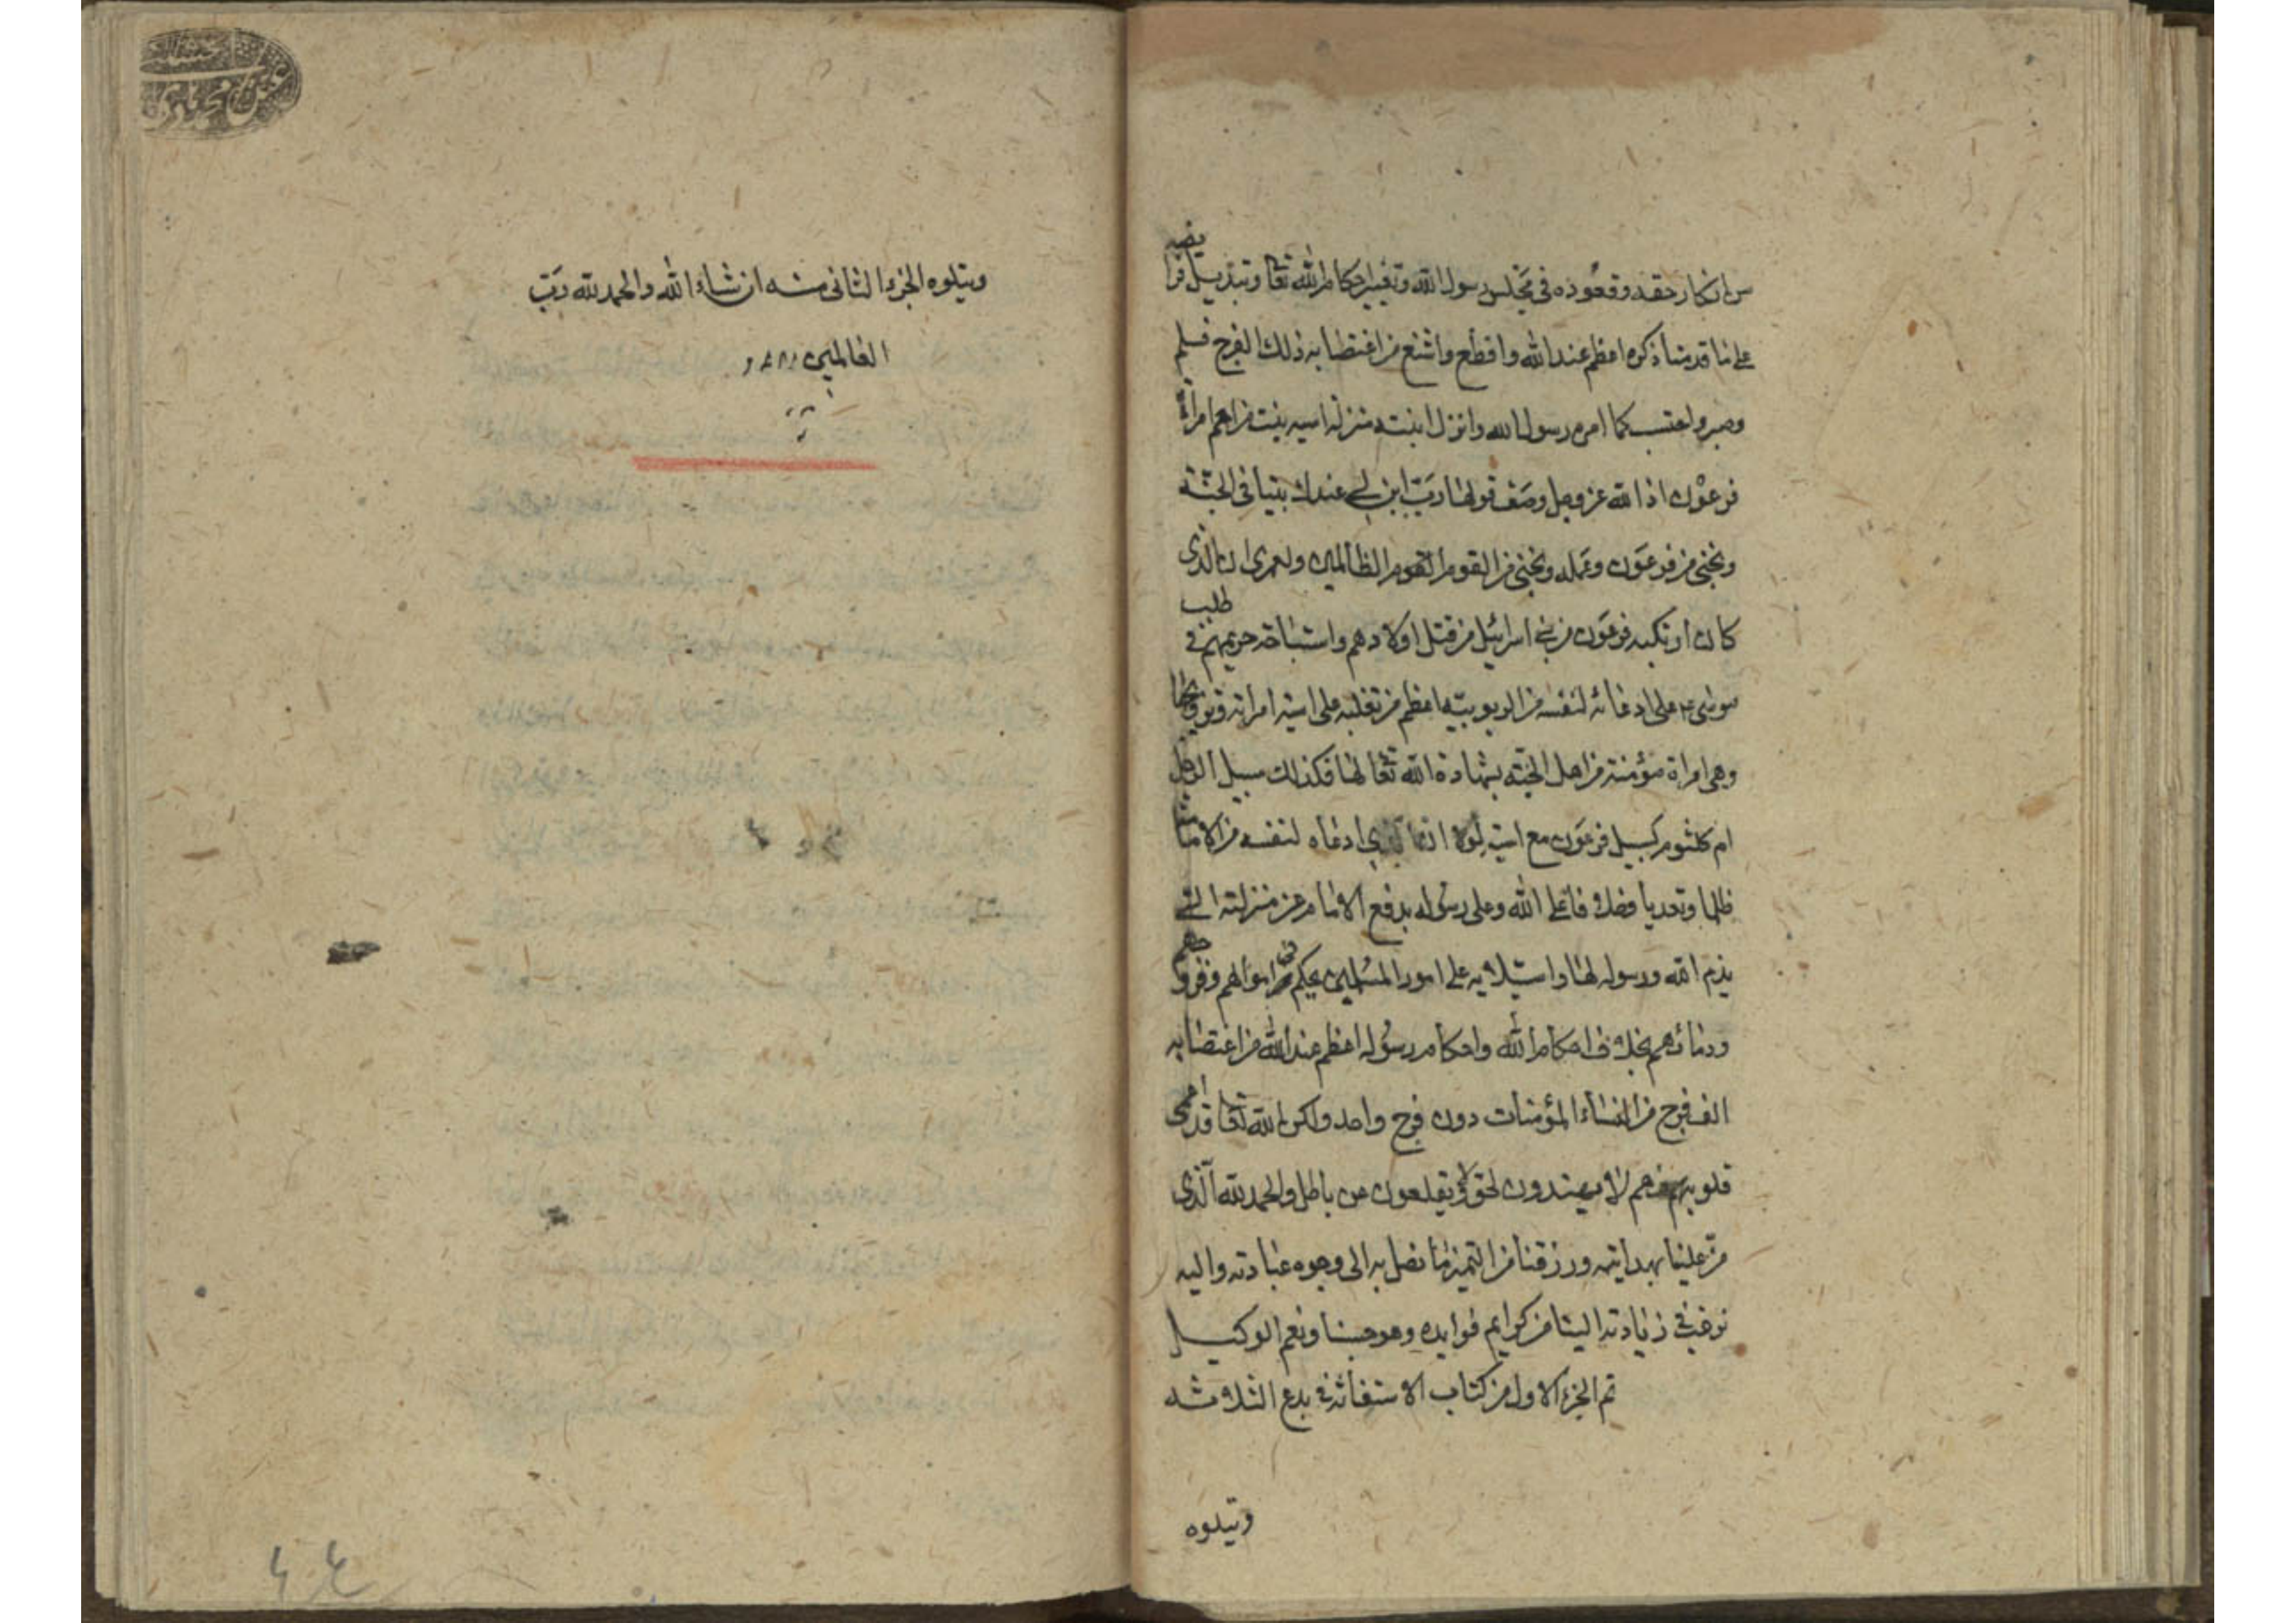 من انكار حقه وقعوده في مجلس رسول الله وتغيير احكام الله تعا وتبديل فرا يضه
على ما قدمنا ذكره اعظم عند الله وافظع واشنع من اغتصابه ذلك الفرج فسلم
وصبر واحتسب كما امره رسول الله وانزل ابنته منزلة اسيه بنت مزاحم امراة
فرعون اذ الله عز وجل وصف قولها رب ابن لي عندك بيتا في الجنة
ونجني من فرعون وعمله ونجني من القوم القوم الظالمين ولعمري ان الذي
كان ارتكبه فرعون من بني اسرائيل من قتل اولادهم واستباحة حريمهم في طلب
موسى ع على ادعائه لنفسه من الربوبية اعظم من تغلبه على اسية امراته وتزويجها
وهي امراة مؤمنة من اهل الجنة بشهادة الله تعا لها فكذلك سبيل الرجل
ام كلثوم كسبيل فرعون مع اسية لولا ادعاه لنفسه من الامامة
ظلما وتعديا وخلافا على الله وعلى رسوله بدفع الامام عن منزلته التي
الله ورسوله لها واستيلائه على امور المسلمين يحكم في اموالهم وفروجهم
ودمائهم بخلاف احكام الله واحكام رسوله اعظم عند الله من اغتصابه
الف فرج من النساء المؤمنات دون فرج واحد ولكن الله تعا قد اعمى
قلوبهم فهم لا يهتدون لحق ولا يقلعون عن باطل والحمد لله الذي
من علينا بهدايته ورزقنا من التميز ما نصل به الى وجوه عبادته واليه
نرغب في زيادته الينا من كرايم فوايده وهو حسبنا ونعم الوكيل
تم الجزء الاول من كتاب الاستغاثة في بدع الثلاثة
ويتلوه
ويتلوه الجزء الثاني منه ان شاء الله والحمد لله رب
العالمين